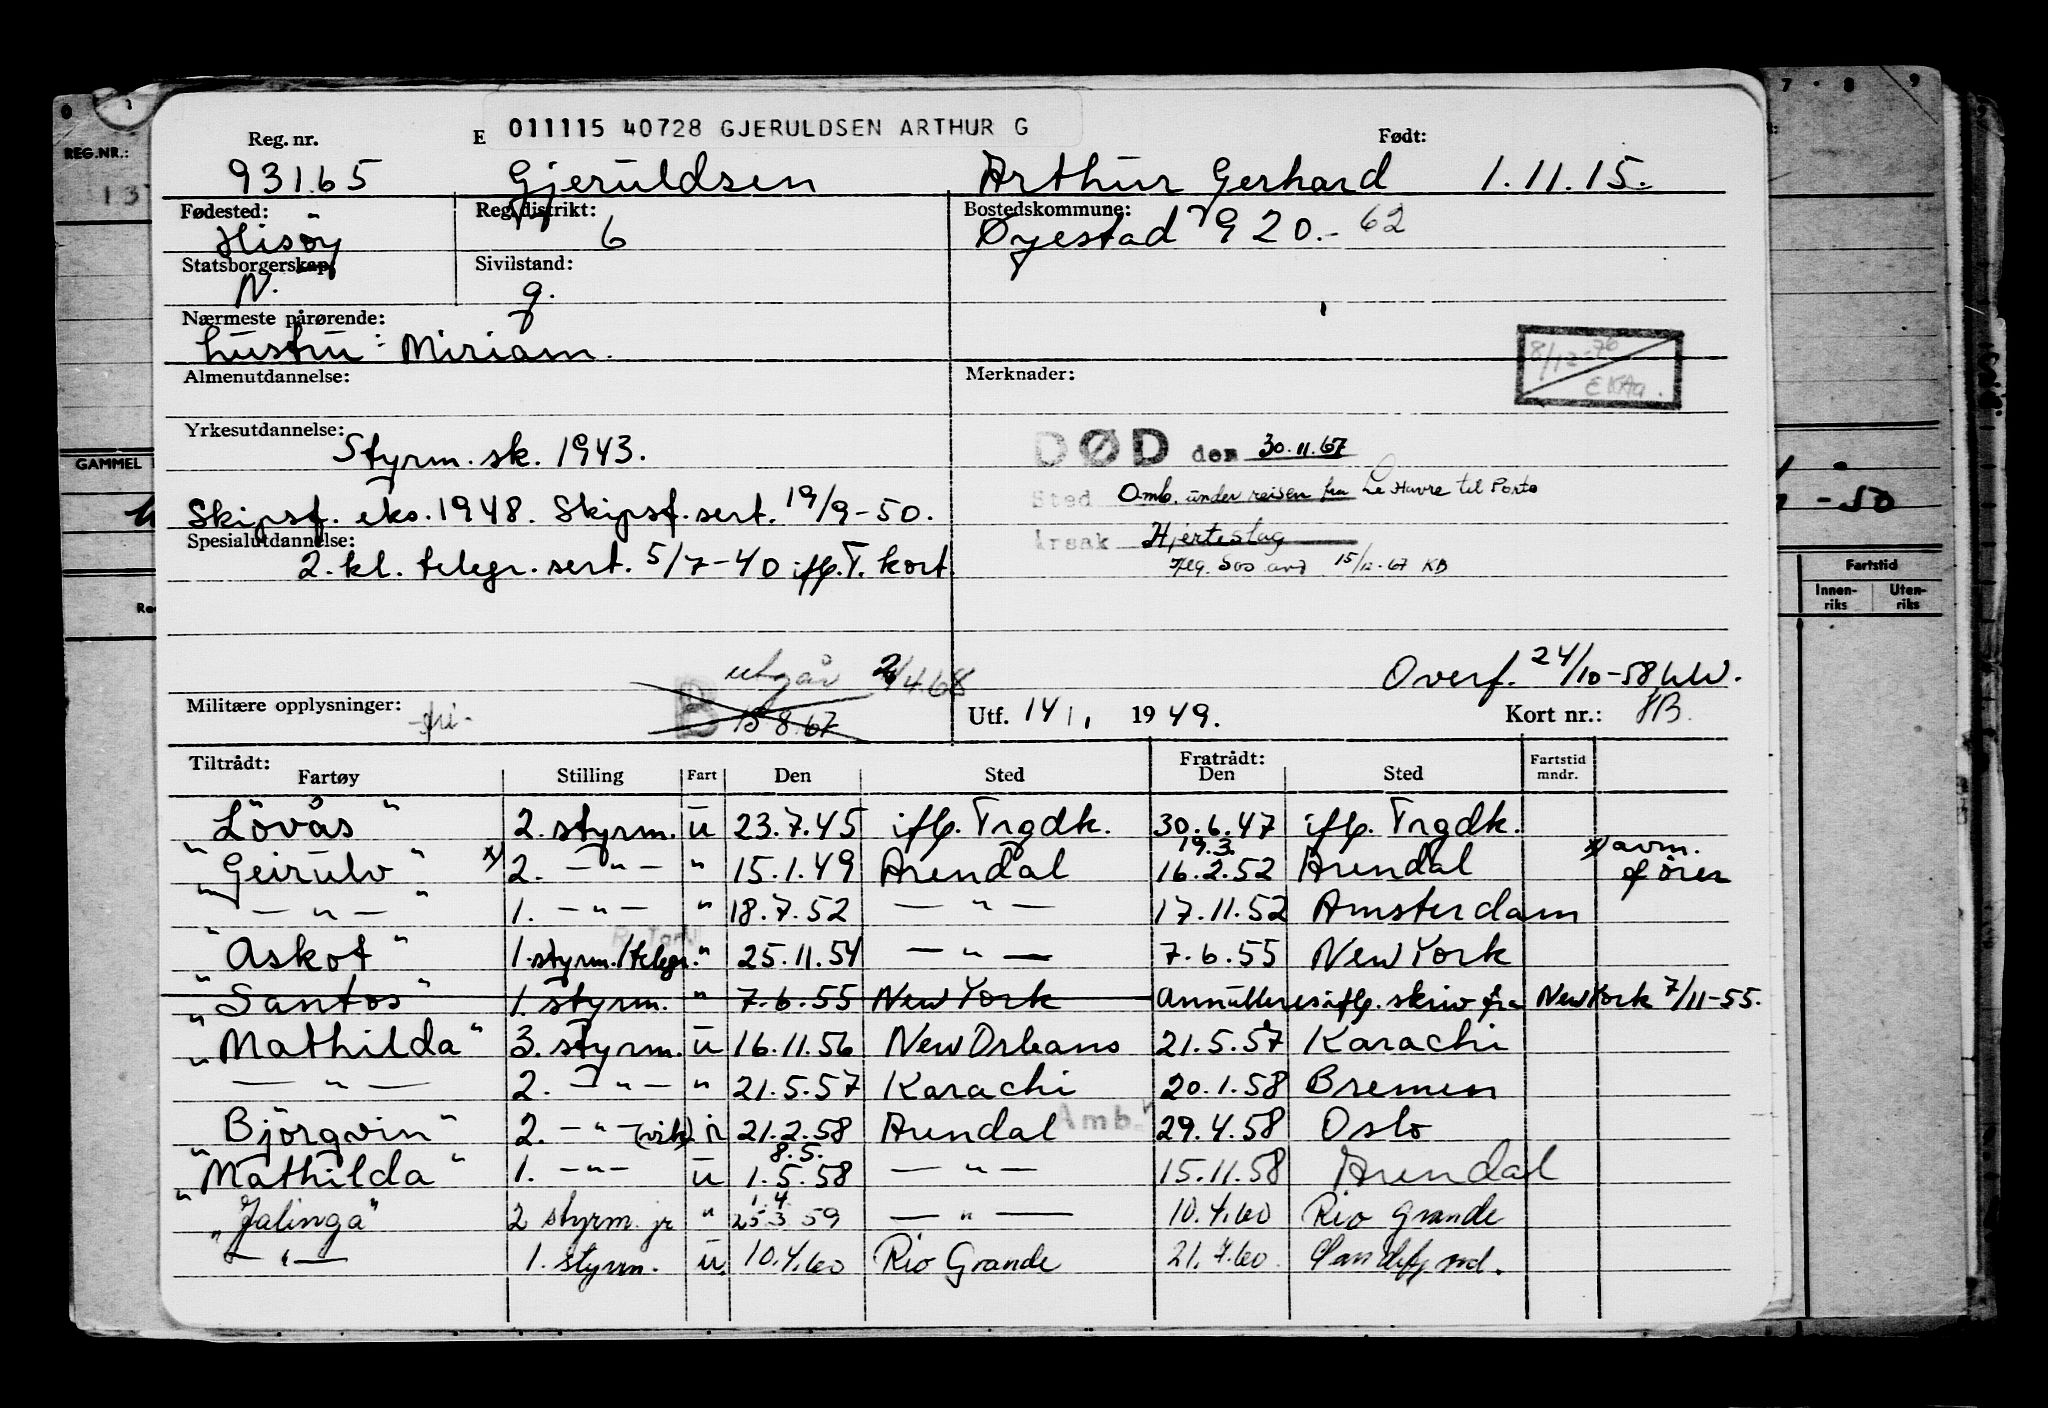 Reg. nr. E 011115 40728 GJERULDSEN ARTHUR G Født:
93165 Gjeruldsen Arthur Gerhard 1.11.15.
Fødested: Reg.distrikt: Bostedskommune:
Hisøy 6 Øyestad 920.- 62
Statsborgerskap: Sivilstand:
N. g.
Nærmeste pårørende:
hustru: Miriam.
8/12-76
Almenutdannelse: Merknader:
Yrkesutdannelse:
Styrm. sk. 1943.
DØD den 30.11.67
Skipsf. eks. 1948. Skipsf. sert. 19/9-50.
Sted Omb. under reisen fra Le Havre til Porto
Spesialutdannelse:
Årsak Hjerteslag
2. kl. telegr. sert. 5/7-40 iflg. T. kort.
15/12-67 KB
utgår 2/4.68
Overf. 24/10-58
Militære opplysninger: -fri- B 15 8.67
Utf. 14/1 1949. Kort nr.:
Tiltrådt: Fratrådt: Fartstid
Fartøy Stilling Fart Den Sted Den Sted mndr.
"Lövås" 2. styrm. u 23.7.45 iflg. Trgdk. 30.6.47 iflg. Trgdk.
19.3.
"Geirulv" x) 2. —"— " 15.1.49 Arendal 16.2.52 Arendal x) avm. fører
"—"—" 1. —"— " 18.7.52 —"— 17.11.52 Amsterdam
"Askot" 1.styrm./telegr. " 25.11.54 —"— 7.6.55 New York
"Santos" 1. styrm. " 7.6.55 New York Annulleres iflg. skriv fra New York 7/11-55.
"Mathilda" 3. styrm. u 16.11.56 New Orleans 21.5.57 Karachi
—"— 2. —"— " 21.5.57 Karachi 20.1.58 Bremen
Amb.
"Björgvin" 2. —"— (vik) i 21.2.58 Arendal 29.4.58 Oslo
8.5.
"Mathilda" 1. —"— u 1.5.58 —"— 15.11.58 Arendal
1.4
"Jalinga" 2 styrm. jr " 25.3 59 —"— 10.4.60 Rio Grande
—"— 1. styrm. u. 10.4.60 Rio Grande 21.7.60 Sandefjord.
REG.NR.:
GAMMEL
-50
Fartstid
Innen-riks Uten-riks
7 8 9